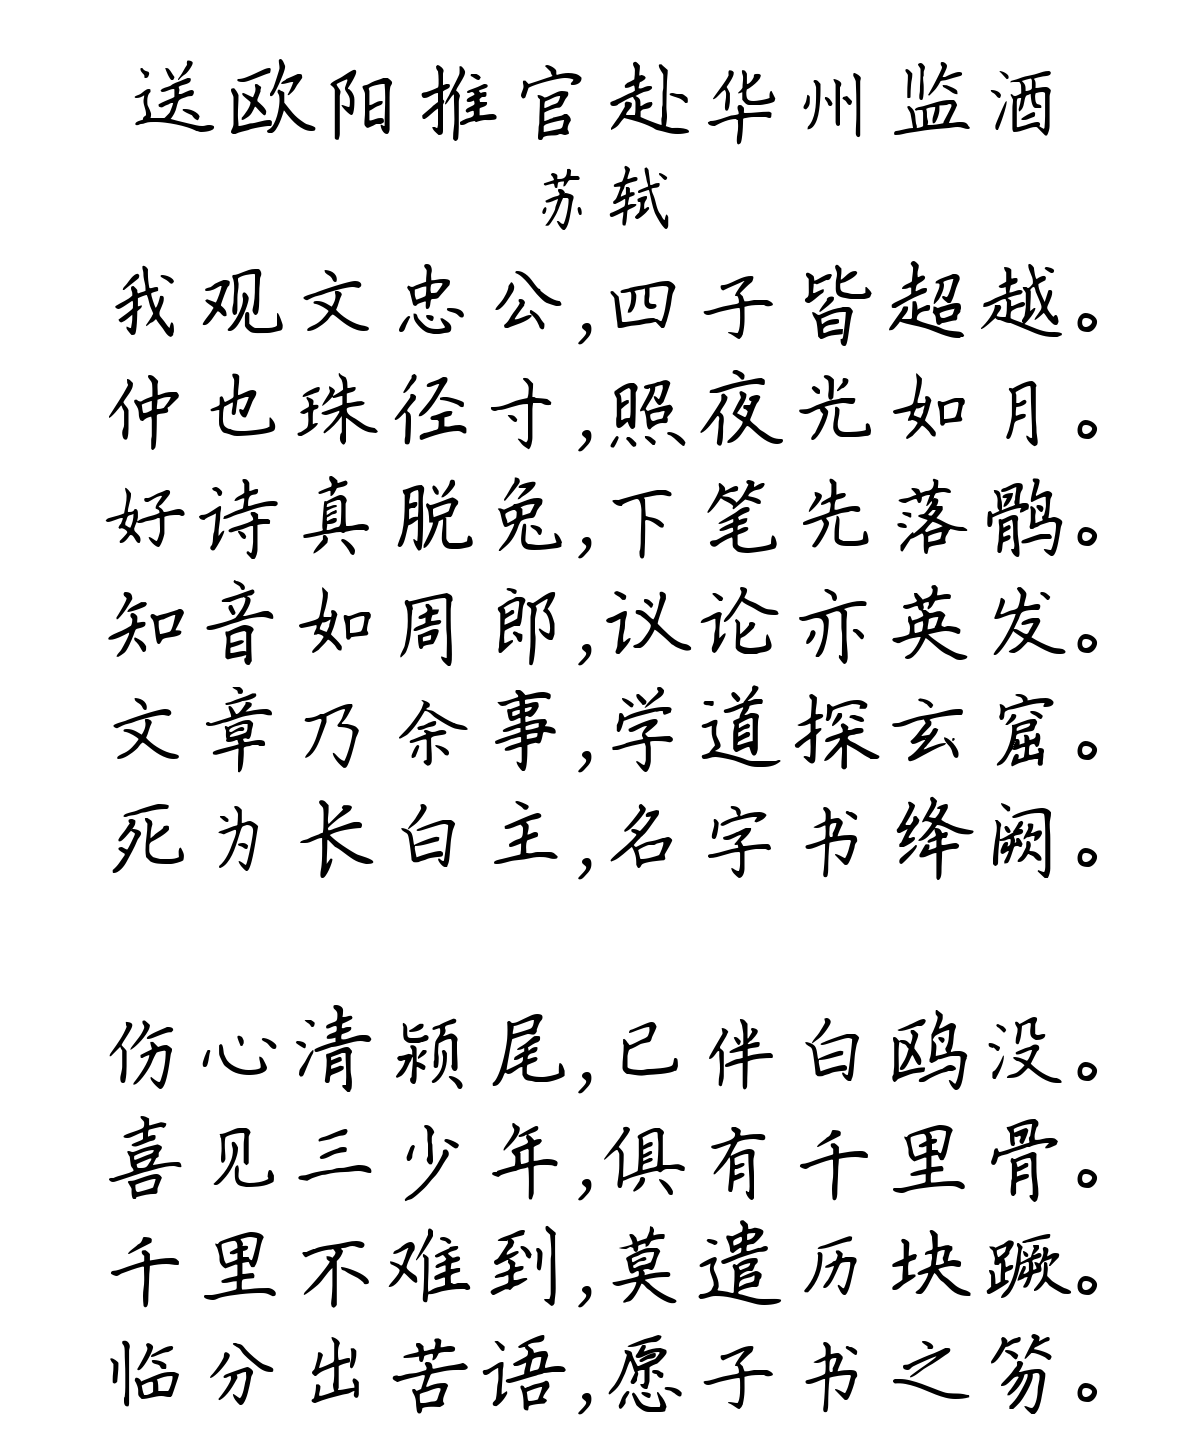 送欧阳推官赴华州监酒
苏轼
我观文忠公,四子皆超越。
仲也珠径寸,照夜光如月。
好诗真脱兔,下笔先落鹘。
知音如周郎,议论亦英发。
文章乃余事,学道探玄窟。
死为长白主,名字书绛阙。
伤心清颍尾,已伴白鸥没。
喜见三少年,俱有千里骨。
千里不难到,莫遣历块蹶。
临分出苦语,愿子书之笏。